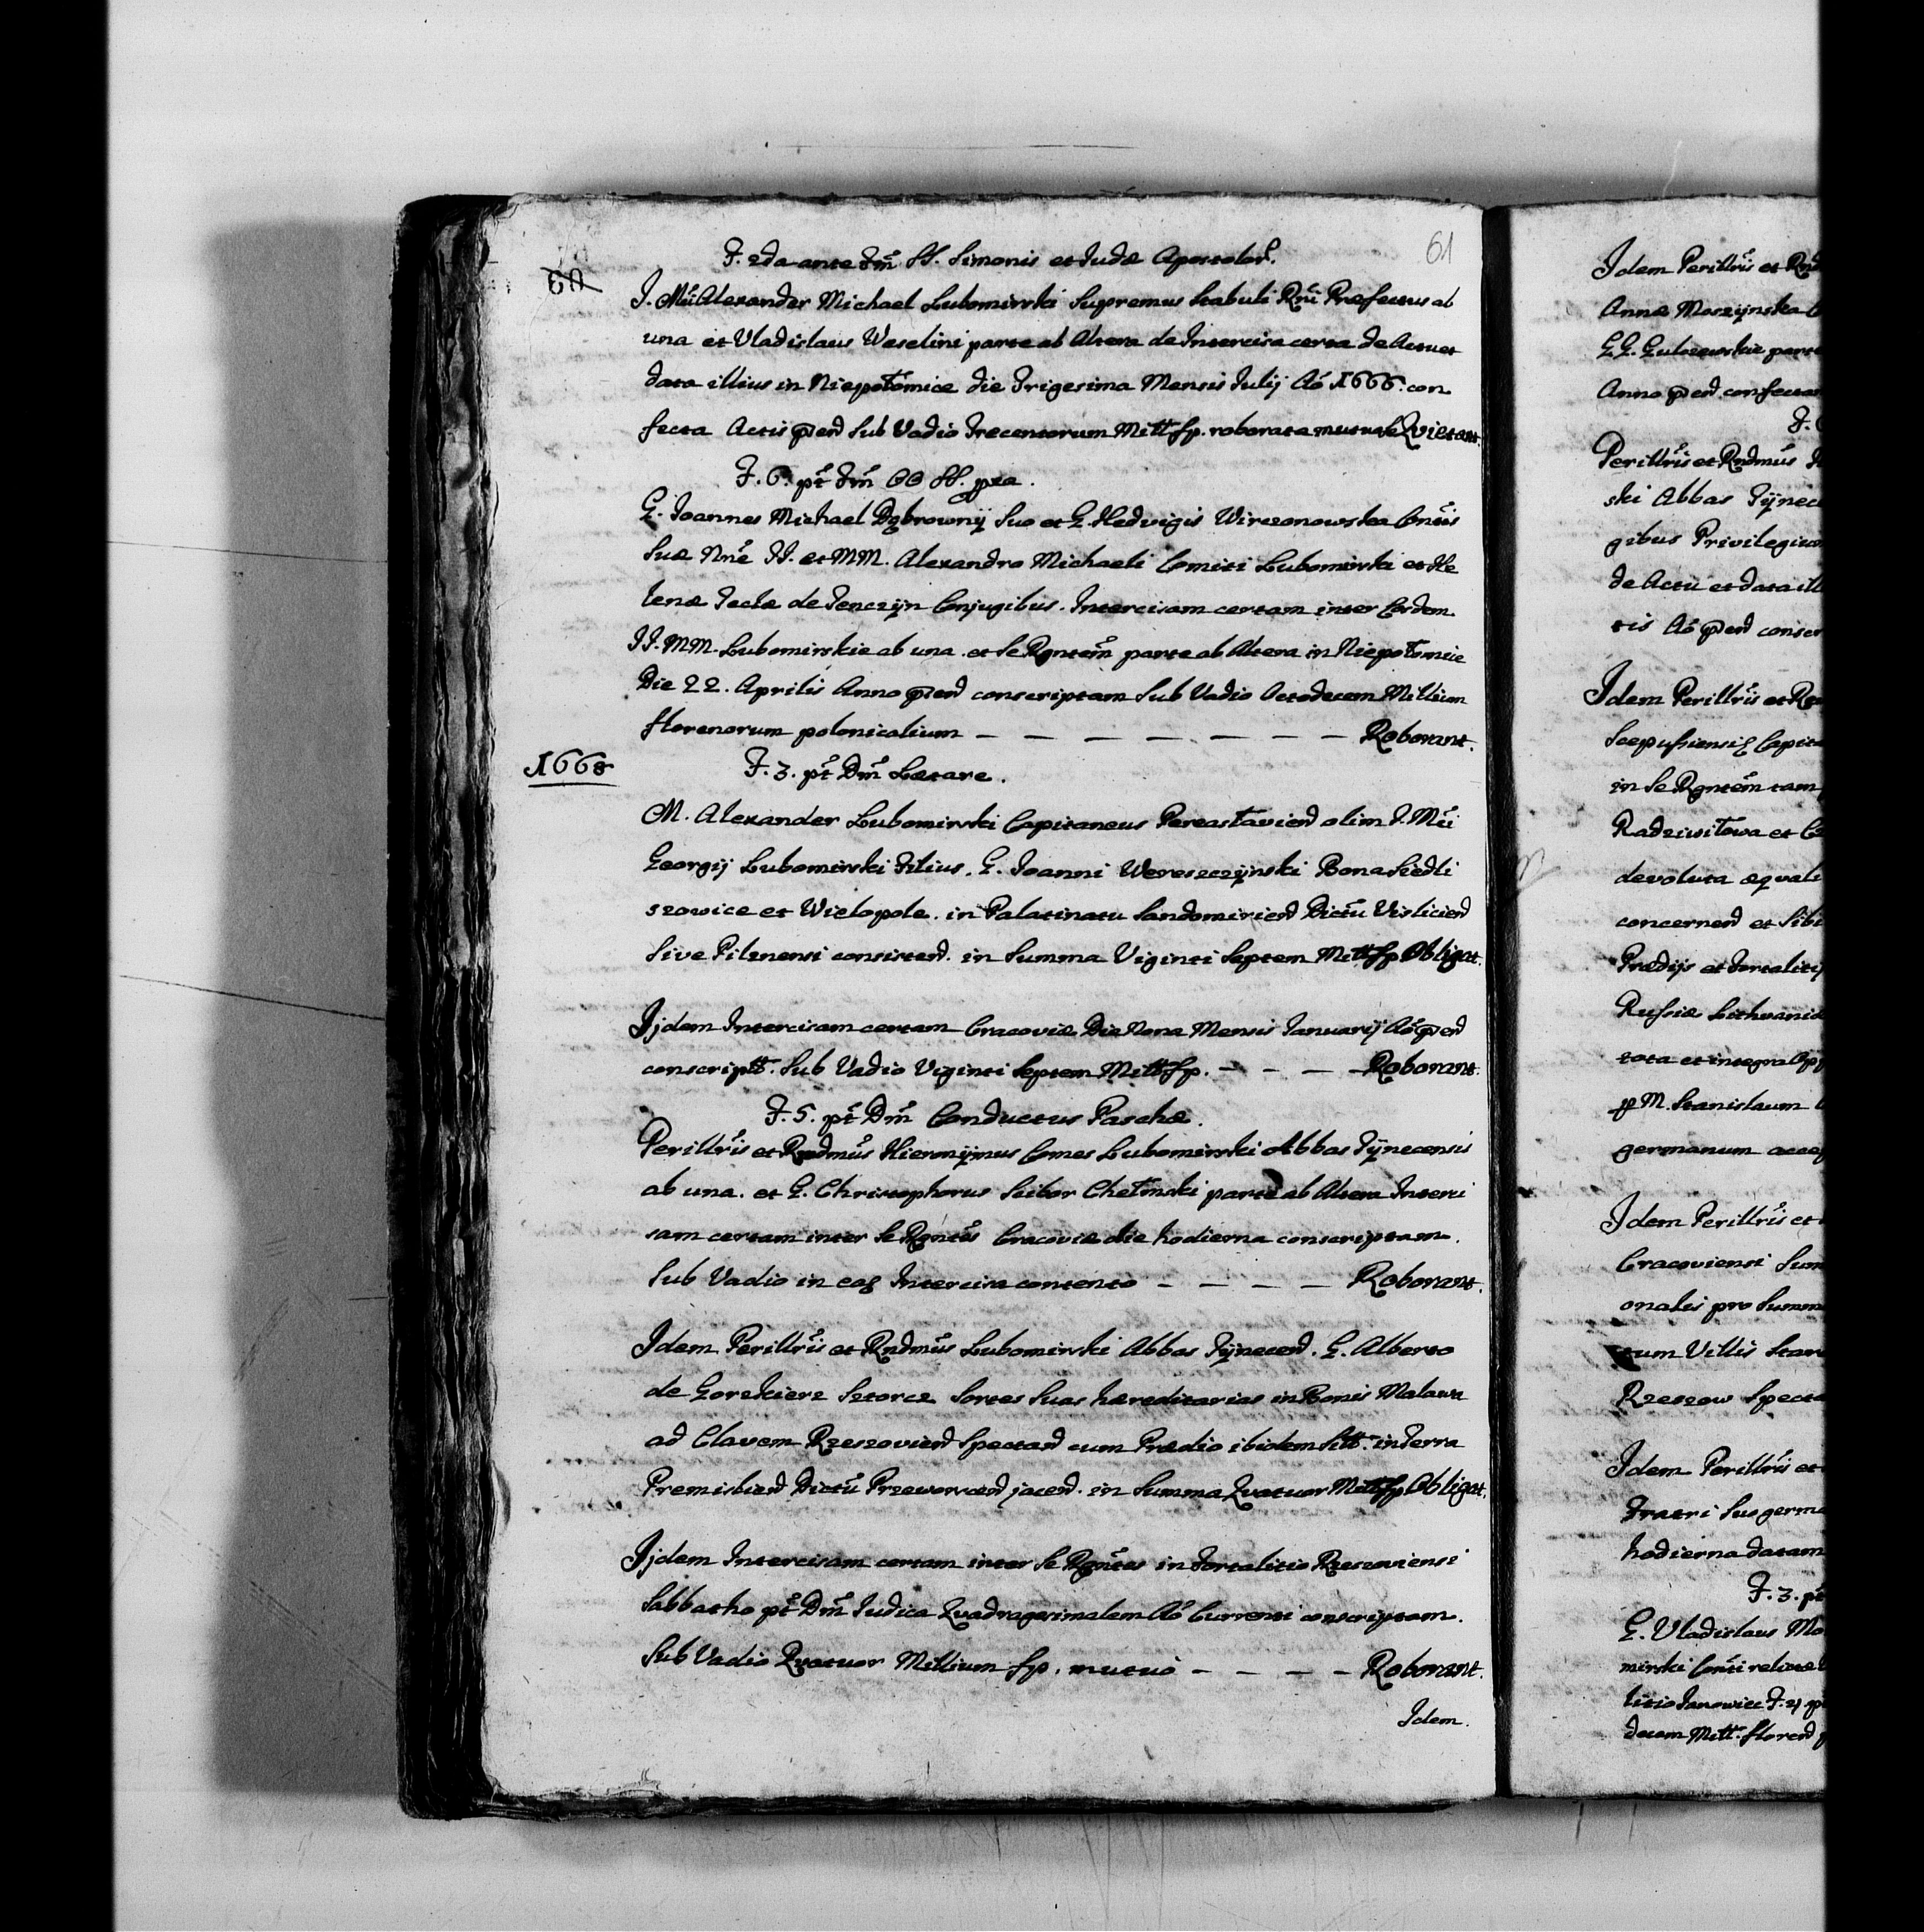 61
60
F. 2da ante Fm̃ SS. Simonis et Judæ Apostolor.
J. Mũ Alexander Michael Lubomirski Supremus Stabuli Rñi Præfectus ab
una et Vladislaus Weselini parte ab Altera de Intercisa certa de Actu et
data illius in Niepołomice die Trigesima Mensis Julij Aõ 1666. con
fecta Actis p̃end Sub Vadio Trecentorum Mill fp. roborata mutuo se Quietant.
F. 6. pt̃ Fm̃ OO SS. pxa.
G. Joannes Michael Dąbrownÿ Suo et G. Hedvigis Wirzonowska Conĩs
Suæ Nñe JJ. et MM. Alexandro Michaeli Comiti Lubomirski et He
lenæ Teclæ de Tenczÿn Conjugibus. Intercisam certam inter Eosdem
JJ. MM. Lubomirskie ab una et Se Rgntem̃ parte ab Altera in Niepołomice
Die 22. Aprilis Anno p̃end conscriptam Sub Vadio Octodecem Millium
florenorum polonicalium — — — — — — — Roborant.
1668
F. 3. pt̃ Dm̃ Lætare.
M. Alexander Lubomirski Capitaneus Pereasłaviend olim J. Mĩi
Georgij Lubomirski Filius. G. Joanni Wereszczÿnski Bona Siedli
szowice et Wielopole. in Palatinatu Sandomiriend Dictũ Visliciend
Sive Pilznensi consistend. in Summa Viginti Septem Mill fp Obligat.
Ijdem Intercisam certam Cracoviæ Die Nona Mensis Januarij Aõ p̃end
conscriptt. Sub Vadio Viginti Septem Mill fp. — — — — Roborant.
F. 5. pt̃ Dm̃ Conductus Paschæ.
Perillr̃is et Rndmũs Hieronÿmus Comes Lubomirski Abbas Tÿnecensis
ab una. et G. Christophorus Scibor Chełmski parte ab Altera Interci
sam certam inter Se Rgntẽs Cracoviæ die hodierna conscriptam.
Sub Vadio in eag Intercisa contento — — — — Roborant.
Idem Perillr̃is et Rndmũs Lubomirski Abbas Tÿnecend. G. Alberto
de Gorzkierz Sztorcz Sortes Suas hæreditarias in Bonis Malawa
ad Clavem Rzeszoviend Spectand cum Prædio ibidem Sitt. in Terra
Premisliend Dictũ Przeworscend jacend. in Summa Quatuor Mill fp Obligat.
Ijdem Intercisam certam inter Se Rgntẽs in Fortalitio Rzeszoviensi
Sabbatho pt̃ Dm̃ Judica Quadragesimalem Aõ Currenti conscriptam.
Sub Vadio Quatuor Millium fp. mutuo — — — — Roborant.
Idem.
Idem Perillr̃is et Rnd
Annæ Moszÿnska
G.G. Gulczewskie parte
Anno p̃end confectas
F.
Perillr̃is et Rndmũs
ski Abbas Tÿnec
gibus Privilegium
de Actu et data ill
tis Aõ p̃end conser
Idem Perillr̃is et Rn
Scepusiensis Capit
in Se Rgntem̃ tam
Radziwiłowa et
devoluta æquali
concernend et Sibi
Prædijs et Fortalitij
Russiæ Lithvaniæ
tota et integra
p M. Stanislaum
germanum accep
Idem Perillr̃is et
Cracoviensi Sum
onalis pro Summ
cum Villis Star
Rzeszow Specta
Idem Perillr̃is et
Fratri Suo germa
hodierna datam
F. 3. pt̃
G. Vladislaus Mo
mirski Conti relictæ
litio Janowiec F. 4 p
decem Mill. florend